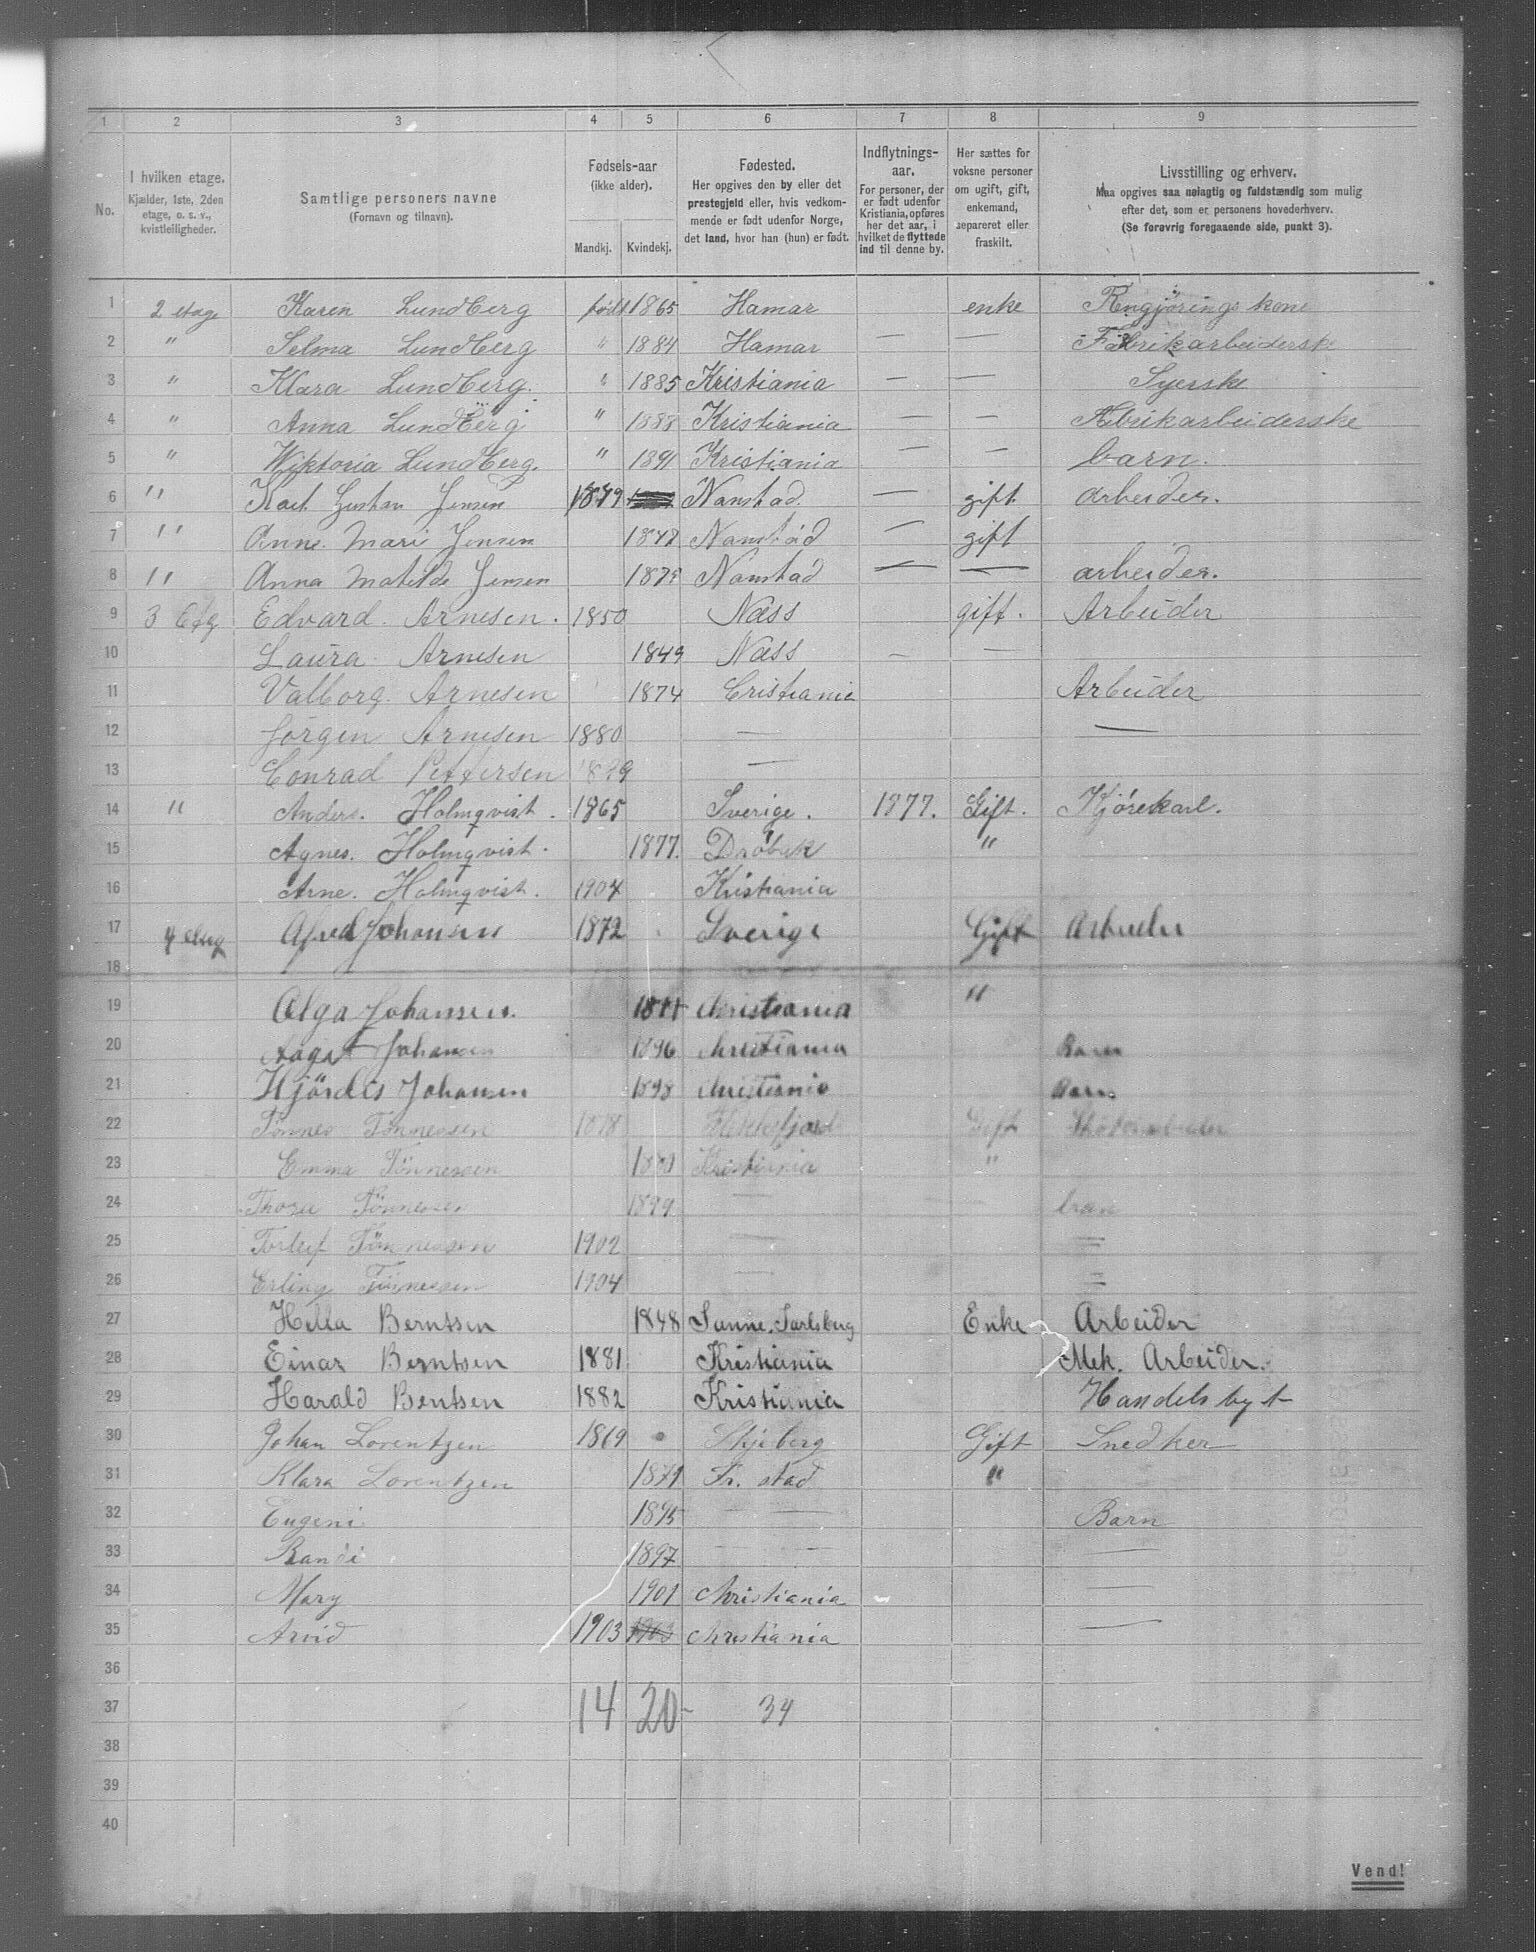 1 2 3 4 5 6 7 8 9
No.
I hvilken etage.
Kjælder, 1ste, 2den
etage, o. s. v.,
kvistleiligheder.
Samtlige personers navne
(Fornavn og tilnavn).
Fødsels-aar
(ikke alder).
Mandkj. Kvindekj.
Fødested.
Her opgives den by eller det
prestegjeld eller, hvis vedkom-
mende er født udenfor Norge,
det land, hvor han (hun) er født.
Indflytnings-
aar.
For personer, der
er født udenfor
Kristiania, opføres
her det aar, i
hvilket de flyttede
ind til denne by.
Her sættes for
voksne personer
om ugift, gift,
enkemand,
separeret eller
fraskilt.
Livsstilling og erhverv.
Maa opgives saa nøiagtig og fuldstændig som mulig
efter det, som er personens hovederhverv.
(Se forøvrig foregaaende side, punkt 3).
1 2 etage Karen Lundberg født 1865 Hamar enke Rengjørings kone
2 " Selma Lundberg " 1884 Hamar — — Fabrikarbeiderske
3 " Klara Lundberg. " 1885 Kristiania — — Syerske
4 " Anna Lundberg " 1888 Kristiania — — Fabrikarbeiderske
5 " Wiktoria Lundberg. " 1891 Kristiania — — barn.
6 " Karl Gustav Jensen 1849 Nanstad. — gift arbeider.
7 " Anne Mari Jensen 1848 Nanstad — gift
8 " Anna Matilde Jensen Nanstad — — arbeider.
9 3 Etg Edvard Arnesen. 1850 Næss gift. Arbeider
10 Laura Arnesen 1849 Næss — —
11 Valborg Arnesen 1874 Cristiania Arbeider
12 Jørgen Arnesen 1880 — —
13 Conrad Pettersen 1899 —
14 " Anders. Holmqvist. 1865 Sverige. 1877. Gift. Kjørekarl.
15 Agnes. Holmqvist. 1877. Drøbak "
16 Arne. Holmqvist. 1904 Kristiania
17 4 etag Alfred Johansen 1872 Sverige Gift Arbeider
18
19 Olga Johansen. Christiania "
20 Aagot Johansen 1896 Christiania Barn
21 Hjördis Johansen 1898 Christiania Barn
22 Tønnes Tønnessen 1878 Flekkefjord Gift
23 Emma Tönnessen Kristiania "
24 Thora Tönnessen 1899 — barn
25 Torleif Tönnessen 1902 — =
26 Erling Tönnessen 1904 — =
27 Hella Berntsen 1848 Sanne, Sarlsberg Enke Arbeider
28 Einar Berntsen 1881 Kristiania Mek. Arbeider.
29 Harald Berntsen 1882 Kristiania Handelsbyt
30 Johan Lorentzen 1869 Skjeberg Gift Snedker
31 Klara Lorentzen 1871 Fr. stad "
32 Eugeni 1895 — — Barn
33 Randi 1897 — — —
34 Mary 1901 Christiania —
35 Arvid 1903 1903 Christiania —
36
37 14 20 - 34
38
39
40
Vend!